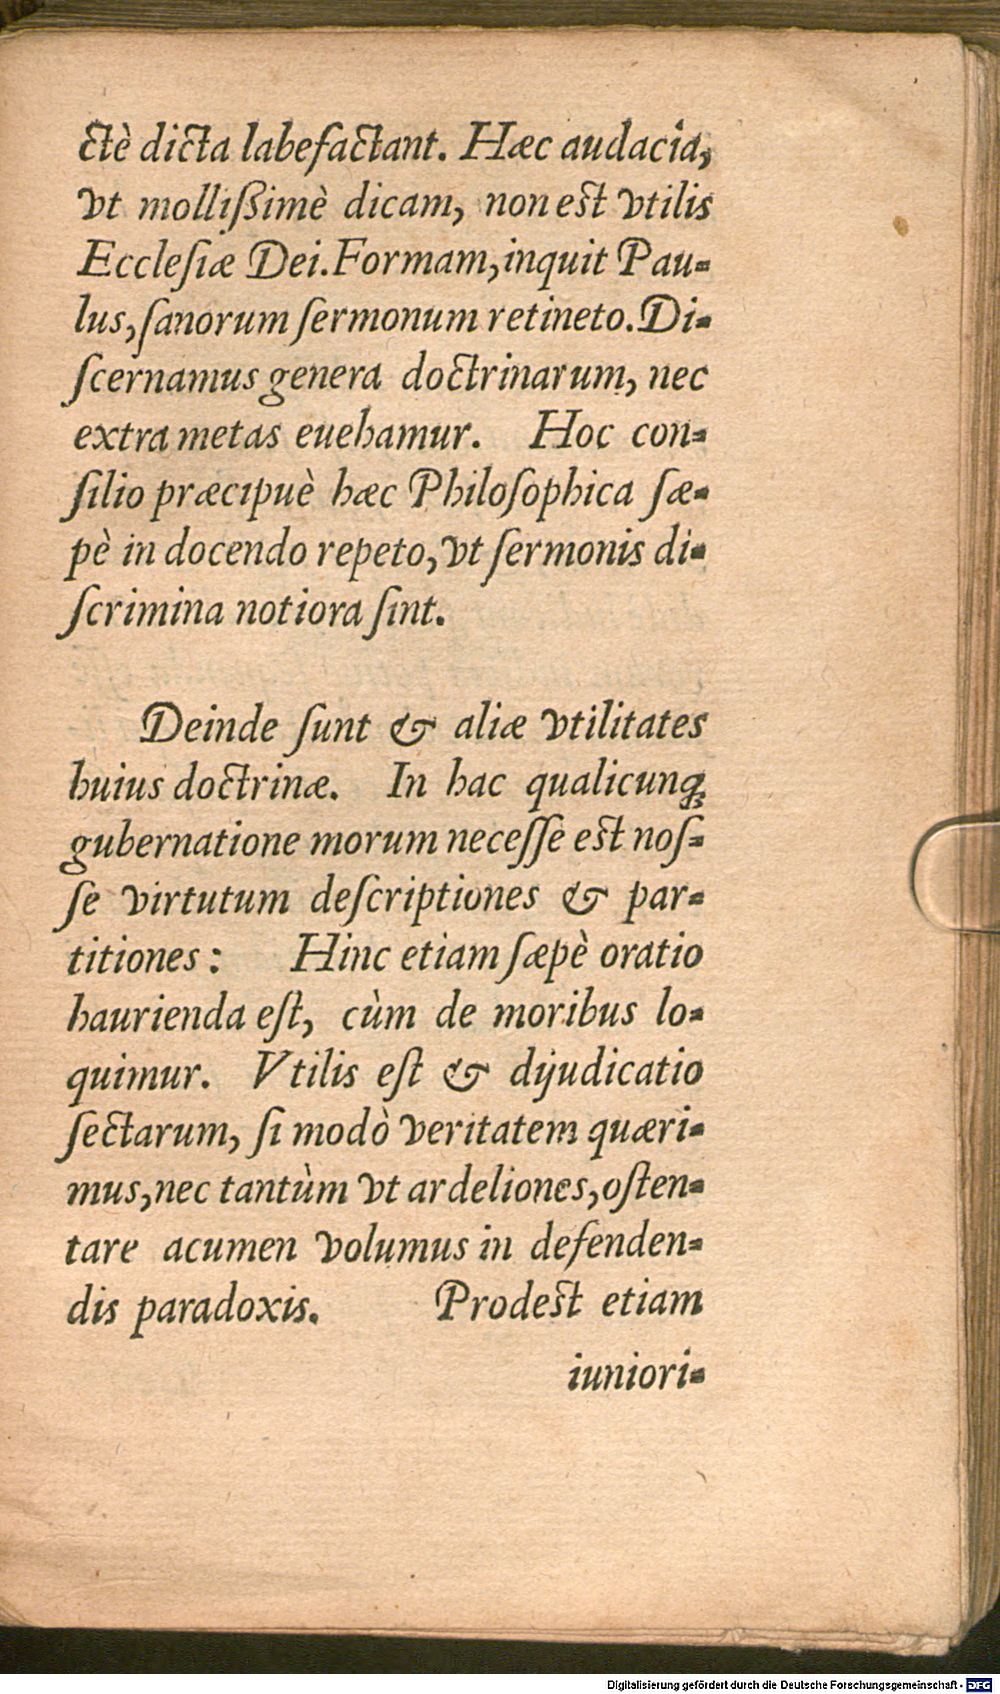 ctè dicta labefactant. Hæc audacia,
vt mollißimè dicam, non est vtilis
Ecclesiæ Dei. Formam, inquit Pau-
lus, ſanorum ſermonum retineto. Di-
ſcernamus genera doctrinarum, nec
extra metas euehamur. Hoc con-
ſilio præcipuè hæc Philoſophica ſæ-
pè in docendo repeto, vt ſermonis di-
ſcrimina notiora ſint.
Deinde ſunt & aliæ vtilitates
huius doctrinæ. In hac qualicunq;
gubernatione morum neceſſe est noſ-
ſe virtutum deſcriptiones & par-
titiones: Hinc etiam ſæpè oratio
haurienda eſt, cùm de moribus lo-
quimur. Vtilis eſt & dijudicatio
ſectarum, ſi modò veritatem quæri-
mus, nec tantùm vt ardeliones, oſten-
tare acumen volumus in defenden-
dis paradoxis. Prodest etiam
iuniori-
Digitalisierung gefördert durch die Deutsche Forschungsgemeinschaft - DFG